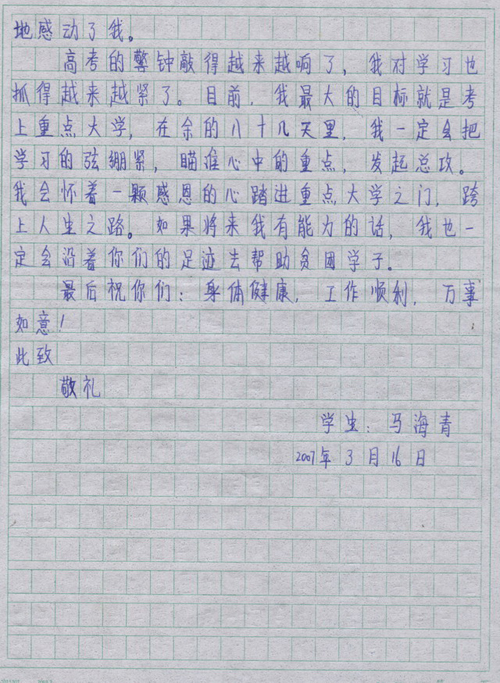 地感动了我。
高考的警钟敲得越来越响了，我对学习也
抓得越来越紧了。目前，我最大的目标就是考
上重点大学，在余的八十几天里，我一定会把
学习的弦绷紧，瞄准心中的重点，发起总攻。
我会怀着一颗感恩的心踏进重点大学之门，跨
上人生之路。如果将来我有能力的话，我也一
定会沿着你们的足迹去帮助贫困学子。
最后祝你们：身体健康，工作顺利，万事
如意！
此致
敬礼
学生：马海青
2007年3月16日